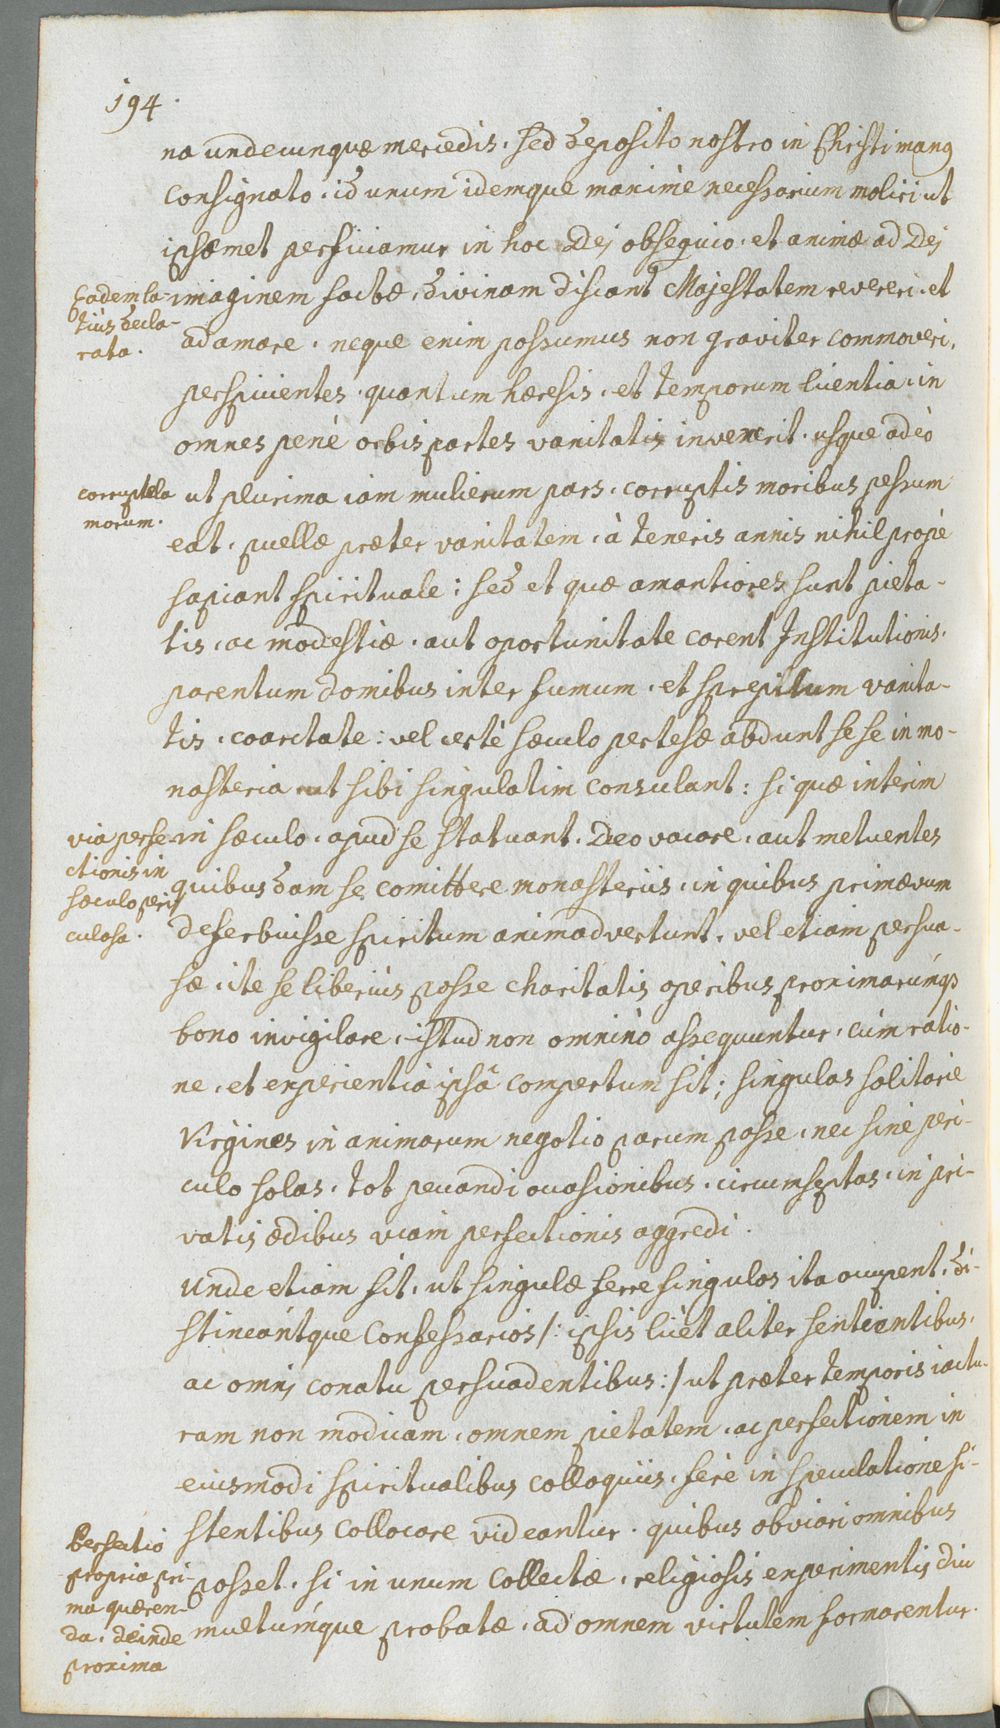 194.
na undecunquæ mercedis. sed deposito nostro in Christi manꝯ
consignato, id unum idemque maximè necessarium moliri, ut
ipsæmet perficiamur in hoc Dei obsequio, et animæ ad Dei
Eadem la-
tiùs decla-
rata.
imaginem factæ, divinam discant Majestatem revereri, et
adamare. neque enim possumus non graviter commoveri,
perspicientes, quantum hæresis, et temporum licentia, in
omnes penè orbis partes vanitatis invexerit, usque adeò
corruptela
morum.
ut plurima iam mulierum pars, corruptis moribus pessum
eat, puellæ præter vanitatem, à teneris annis nihil propè
sapiant spirituale: sed et quæ amantiores sunt pieta-
tis, ac modestiæ, aut oportunitate carent Institutionis,
parentum domibus inter fumum, et strepitum vanita-
tis, coarctatæ: vel certè sæculo pertesæ abdunt sese in mo-
nasteria ut sibi singulatim consulant: si quæ interim
via perfe-
ctionis in
sæculo peri
culosa.
in sæculo, apud se statuant, Deo vacare, aut metuentes
quibusdam se comittere monasteriis, in quibus primævum
deferbuisse spiritum animadvertunt, vel etiam persua-
sæ, ite se liberiùs posse charitatis operibus proximarúmqꝫ
bono invigilare, istud non omninò assequuntur, cùm ratio-
ne, et experientiâ ipsâ compertum sit; singulas solitarie
Virgines in animarum negotio parum posse, nec sine peri-
culo solas, tot peccandi occasionibus, circumseptas, in pri-
vatis ædibus viam perfectionis aggredi.
Unde etiam fit, ut singulæ ferre singulos ita occupent, di-
stineántque Confessarios /: ipsis licèt aliter sentientibus,
ac omni conatu persuadentibus :/ ut præter temporis iactu-
ram non modicam, omnem pietatem, ac perfectionem in
eiusmodi spiritualibus colloquiis, ferè in speculatione si-
stentibus collocare videantur. quibus obviari omnibus
Perfectio
propria pri-
ma quæren-
da, deinde
proxima
posset, si in unum collectæ, religiosis experimentis diu
multúmque probatæ, ad omnem virtutem formarentur.